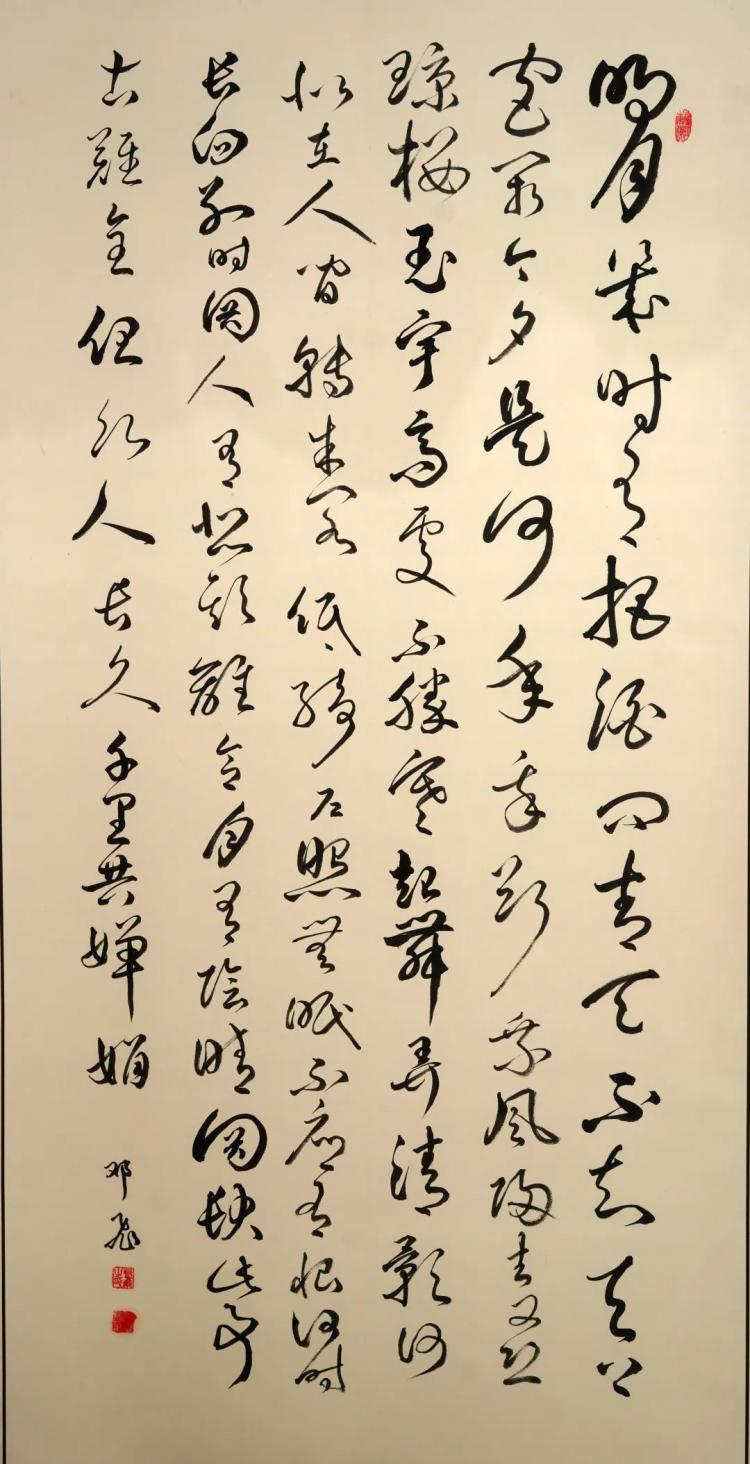 明月幾时有把酒问青天不知天上
宫阙今夕是何年我欲乘风归去又恐
琼楼玉宇高處不勝寒起舞弄清影何
似在人间轉朱阁低绮户照無眠不应有恨何时
长向别时圆人有悲歡離合月有陰晴圆缺此事
古難全但願人长久千里共婵娟
邓飛